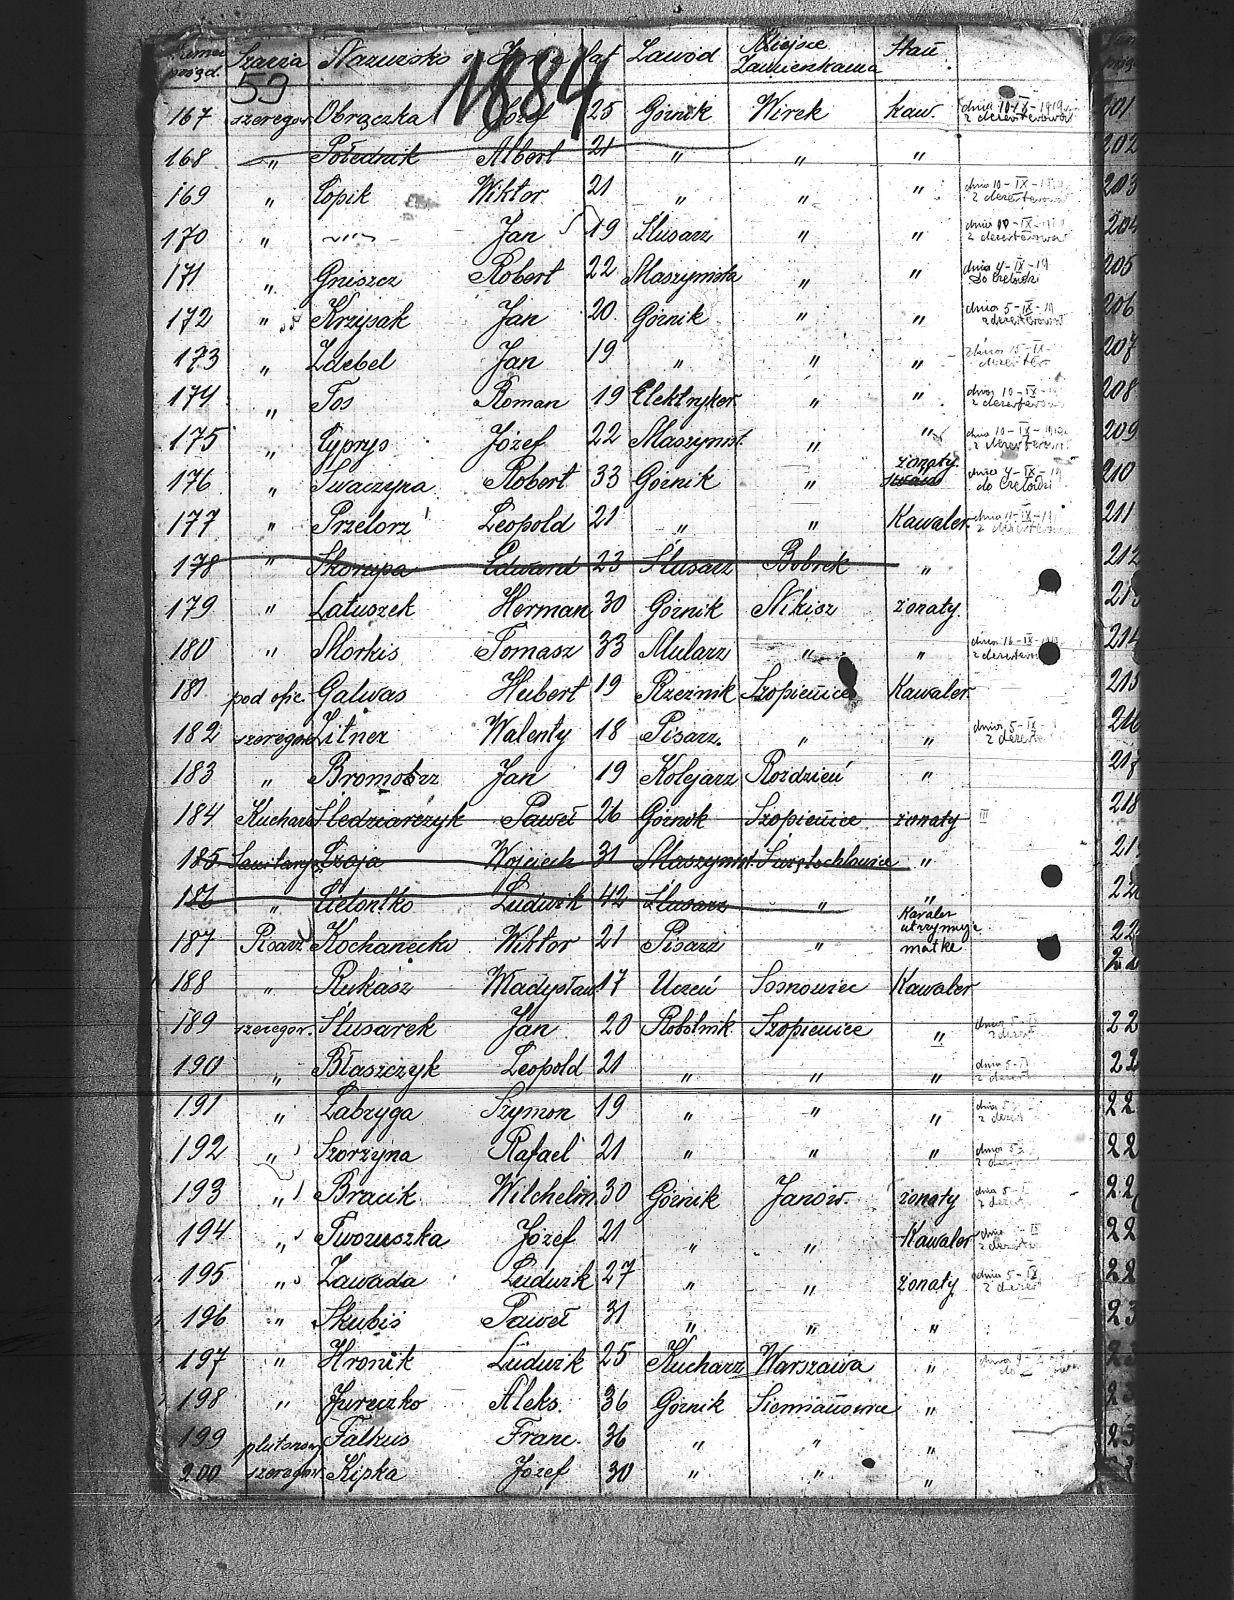 Szarża Nazwisko i Imię lat Zawód Miejsce Zamieszkania Stan
59 1884
167 szeregow. Obrączka Józef 25 Górnik Wirek kaw. dnia 10-IX-1919 z dezerterował
168 " Połednik Albert 21 " " "
169 " Copik Wiktor 21 " " " dnia 10-IX-1919 z dezerterował
170 " " Jan 19 Slusarz " " dnia 10-IX-1919 z dezerterował
171 " Gniszcz Robert 22 Maszynista " " dnia 4-IX-19 do Czeladzi
172 " Krzysak Jan 20 Górnik " " dnia 5-IX-19 z dezerterował
173 " Zdebel Jan 19 " " "
174 " Tos Roman 19 Elektryker " " dnia 10-IX z dezerterował
175 " Cyprys Józef 22 Maszynist. " " dnia 10-IX-1919 z dezerterował
176 " Swaczyna Robert 33 Górnik " żonaty dnia 4-IX-19 do Czeladzi
177 " Przelorz Leopold 21 " " Kawaler dnia 11-IX-19 z dezerterował
178 " Skorupa Edward 23 Slusarz Bobrek "
179 " Latuszek Herman 30 Górnik Nikisz żonaty.
180 " Morkis Tomasz 33 Mularz " " dnia 16-IX-1919 z dezerterował
181 pod ofic. Galwas Hubert 19 Rzeźnik Szopienice Kawaler
182 szeregow. Litner Walenty 18 Pisarz. " " dnia 5-IX z dezert
183 " Bromosz Jan 19 Kolejarz Roździeń "
184 Kucharz Sledziarczyk Paweł 26 Górnik Szopienice żonaty III
185 Czaja Wojciech 31 Maszynist. Świętochłowice "
186 " Ludwik 42 Slusarz " "
187 Pisarz Kochanecki Wiktor 21 Pisarz " Kawaler utrzymuje matkę
188 " Rukasz Władysław 17 Uczeń Sosnowiec Kawaler
189 szeregow. Slusarek Jan 20 Robotnik Szopienice " dnia 5-IX z dezert
190 " Błaszczyk Leopold 21 " " " dnia 5-IX z dezert
191 " Labzyga Szymon 19 " " " dnia 5 z dezert
192 " Szorzyna Rafael 21 " " " dnia 5 z dezert
193 " Bracik Wilchelm. 30 Górnik Janów. żonaty dnia 5 z dezert
194 " Tworuszka Józef 21 " " Kawaler dnia IX z dezerter
195 " Zawada Ludwik 27 " " żonaty dnia 5-IX z dezer
196 " Skubis Paweł 31 " " "
197 " Hronik Ludwik 25 Kucharz Warszawa "
198 " Jureczko Aleks. 36 Górnik Siemianowice "
199 plutonowy Falkus Franc. 36 " " "
200 szeregow. Kipka Józef 30 " " "